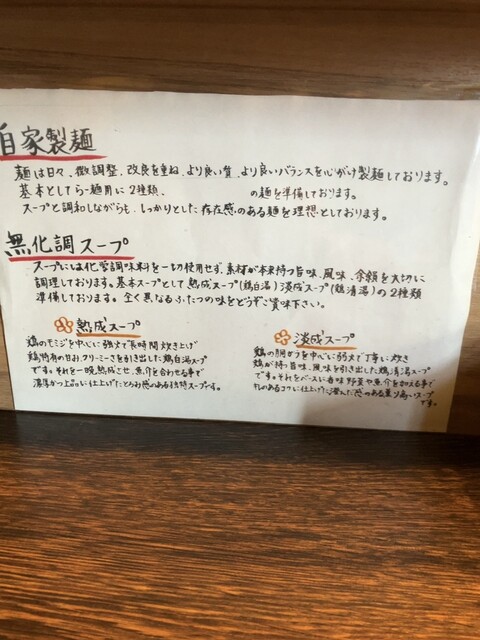 自家製麺
麺は日々、微調整、改良を重ね、より良い質、より良いバランスを心がけ製麺しております。
基本としてらー麺用に2種類、の麺を準備しております。
スープと調和しながらも、しっかりとした存在感のある麺を理想としております。
無化調スープ
スープには化学調味料を一切使用せず、素材が本来持つ旨味、風味、余韻を大切に
調理しております。基本スープとして熟成スープ(鶏白湯)淡成スープ(鶏清湯)の2種類
準備しております。全く異なるふたつの味をどうぞご賞味下さい。
熟成スープ
鶏のモミジを中心に強火で長時間炊き上げ
鶏特有の甘み、クリーミーさを引き出した鶏白湯スープ
です。それを一晩熟成させ、魚介を合わせる事で
濃厚かつ上品に仕上げたとろみ感のある独特スープです。
淡成スープ
鶏の胴ガラを中心に弱火で丁寧に炊き
鶏が持つ旨味、風味を引き出した鶏清湯スープ
です。それをベースに香味野菜や魚介を加える事で
キレのあるコクに仕上げた澄んだ感のある薫り高いスープ
です。